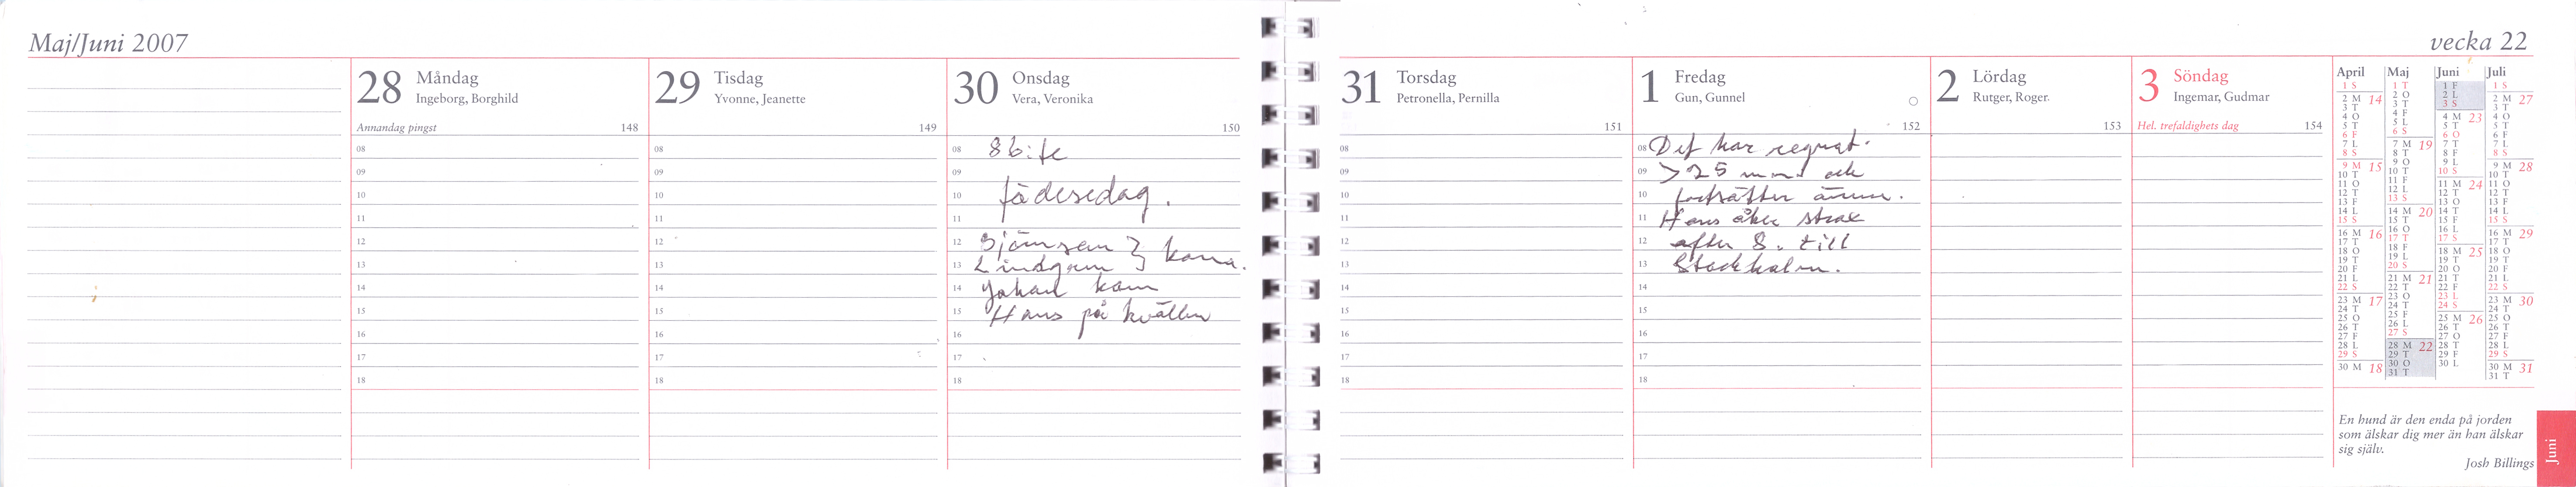 Maj/Juni 2007
28 Måndag
Ingeborg, Borghild
Annandag pingst 148
08
09
10
11
12
13
14
15
16
17
18
29 Tisdag
Yvonne, Jeanette
149
08
09
10
11
12
13
14
15
16
17
18
30 Onsdag
Vera, Veronika
150
08
09
10 födesedag.
11
12
13 Lindgren
14 Johan kom
15 Hans på kvällen
16
17
18
vecka 22
31 Torsdag
Petronella, Pernilla
151
08
09
10
11
12
13
14
15
16
17
18
1 Fredag
Gun, Gunnel
152
08 Det har regnat.
09 >25 mm och
10 fortsätter ännu.
11 Hans åker strax
12 efter 8. till
13 Stockholm.
14
15
16
17
18
2 Lördag
Rutger, Roger
153
3 Söndag
Ingemar, Gudmar
Hel. trefaldighets dag 154
April
1 S
2 M 14
3 T
4 O
5 T
6 F
7 L
8 S
9 M 15
10 T
11 O
12 T
13 F
14 L
15 S
16 M 16
17 T
18 O
19 T
20 F
21 L
22 S
23 M 17
24 T
25 O
26 T
27 F
28 L
29 S
30 M 18
Maj
1 T
2 O
3 T
4 F
5 L
6 S
7 M 19
8 T
9 O
10 T
11 F
12 L
13 S
14 M 20
15 T
16 O
17 T
18 F
19 L
20 S
21 M 21
22 T
23 O
24 T
25 F
26 L
27 S
28 M 22
29 T
30 O
31 T
Juni
1 F
2 L
3 S
4 M 23
5 T
6 O
7 T
8 F
9 L
10 S
11 M 24
12 T
13 O
14 T
15 F
16 L
17 S
18 M 25
19 T
20 O
21 T
22 F
23 L
24 S
25 M 26
26 T
27 O
28 T
29 F
30 L
Juli
1 S
2 M 27
3 T
4 O
5 T
6 F
7 L
8 S
9 M 28
10 T
11 O
12 T
13 F
14 L
15 S
16 M 29
17 T
18 O
19 T
20 F
21 L
22 S
23 M 30
24 T
25 O
26 T
27 F
28 L
29 S
30 M 31
31 T
En hund är den enda på jorden
som älskar dig mer än han älskar
sig själv.
Josh Billings
Juni